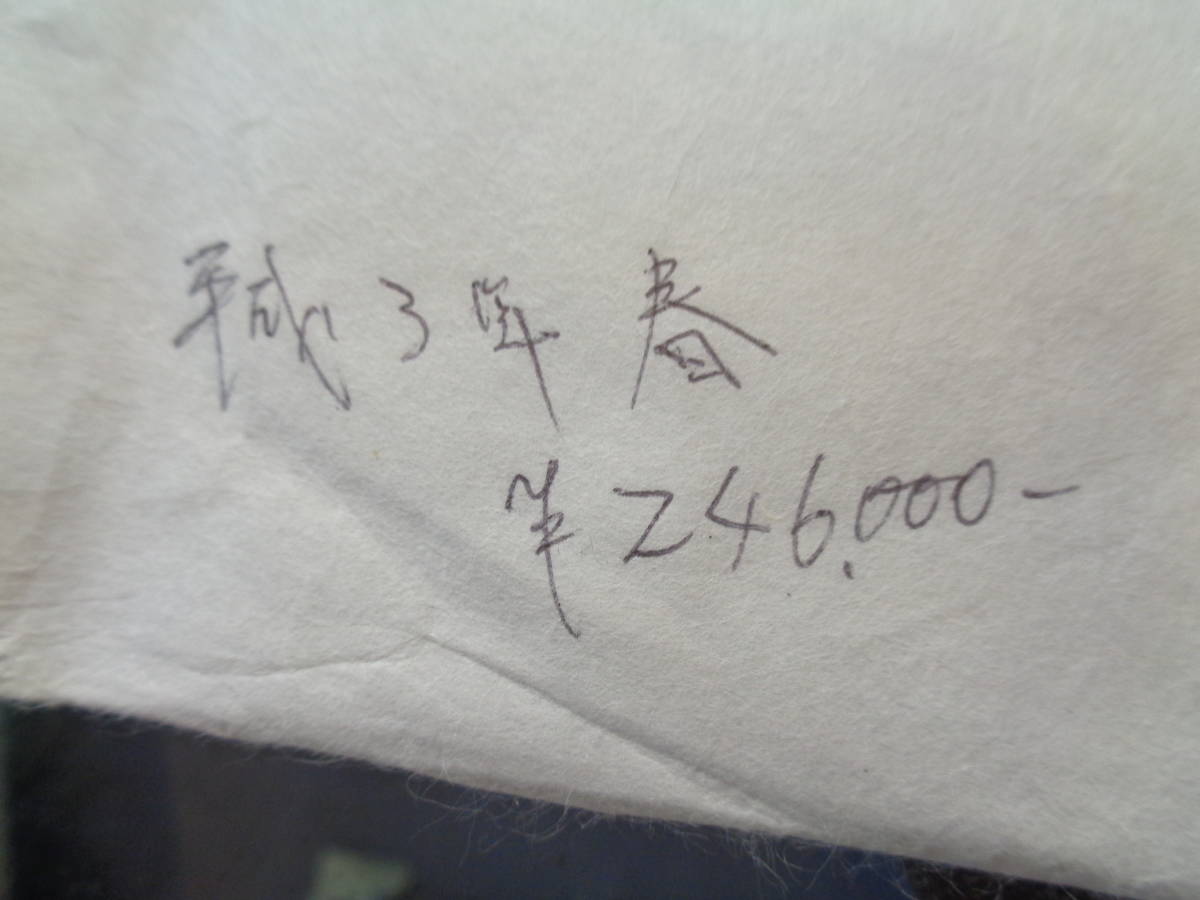 平成3年春
¥246.000-